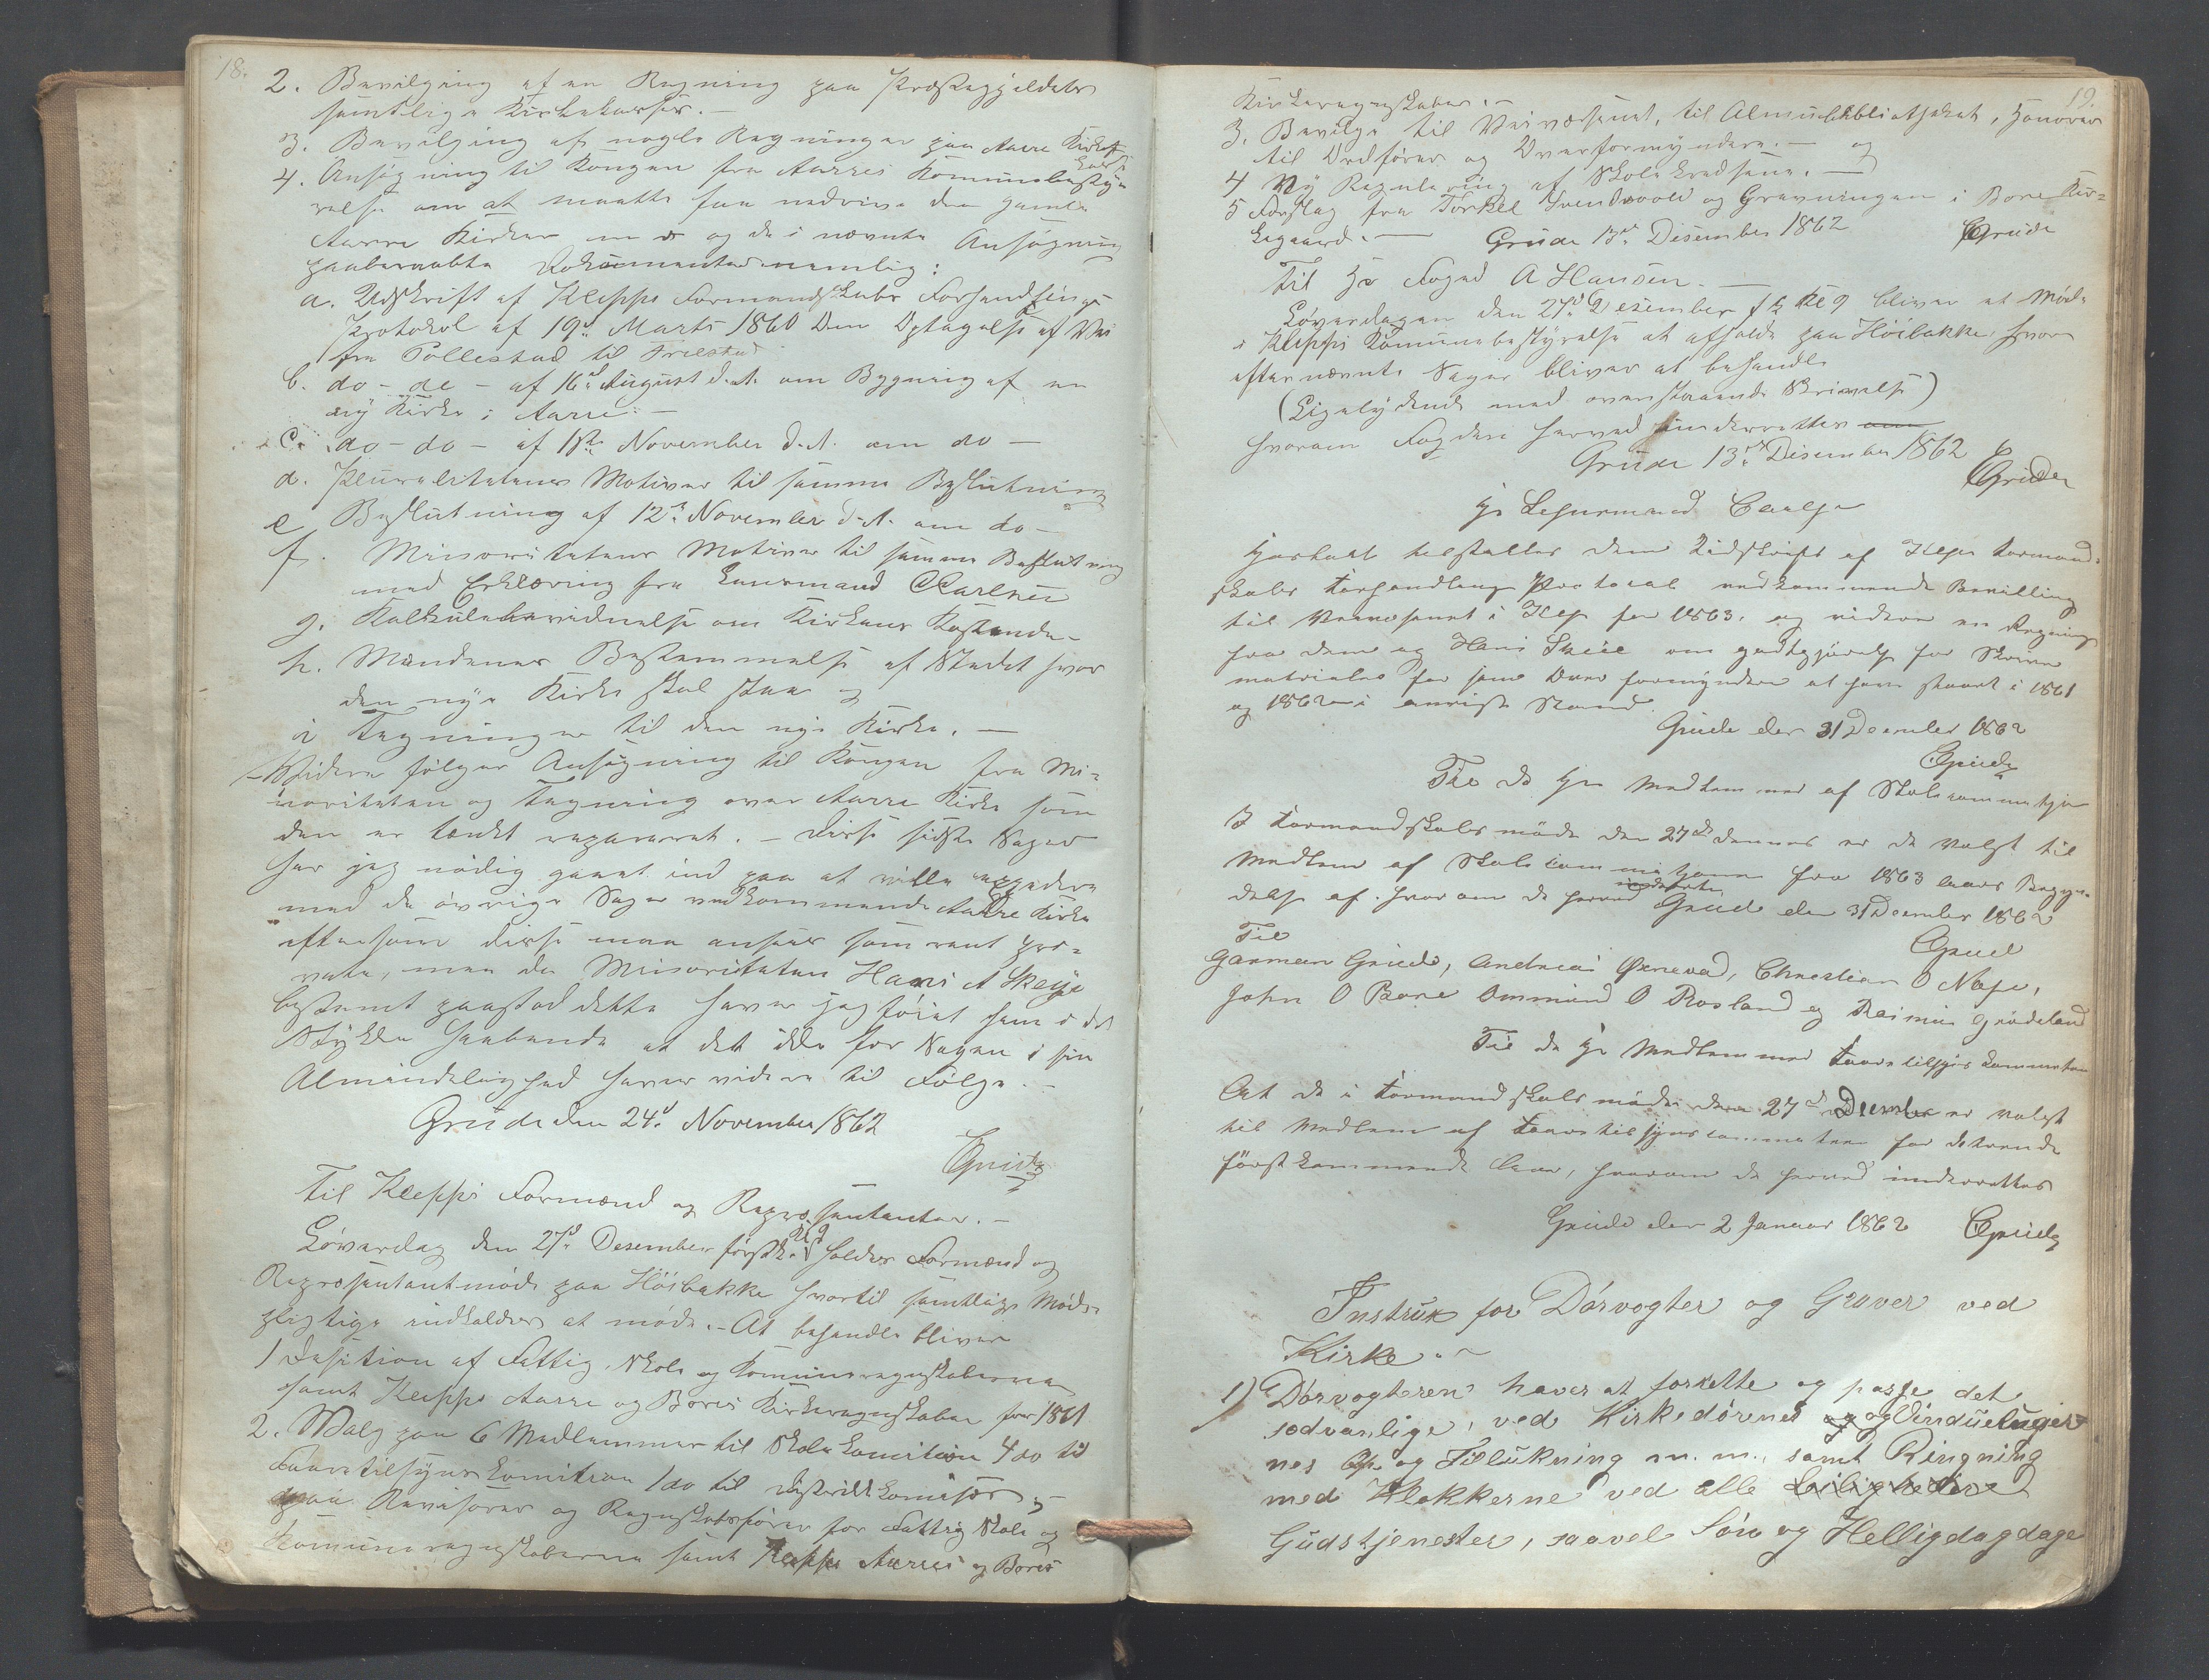 18.
2. Bevilgning af en Regning paa Præstegjeldets
samtlige Kirkekasser. -
3. Bevilging af nogle Regninger paa Aarre Kirke
4. Ansögning til Kongen fra Aarres Kommunebesty-
relse om at maatte faa nedrive den gamle
Aarre Kirke og de i nævnte Ansögning
paaberaabte Dokumenter nemlig:
a. Udskrift af Klepps Formandskabs Forhandlings
Protokol af 19d Marts 1860 Om Optagelse af Vei
fra Pollestad til Friestad
b. do - do - af 16d August d.A. om Bygning af en
ny Kirke i Aarre: -
c. do - do - af 1ste November d.A. om do -
d. Pluralitetens Motiver til samme Beslutning
e Beslutning af 12te November d.A. om do -
f. Minoritetens Motiver til samme Beslutning
med Erklæring fra Lensmand CCarlsen
g. Kalkulebevidnelse om Kirkens Kostende -
h. Mændenes Bestemmelse af Stedet hvor
den nye Kirke skal staa og
i Tegninger til den nye Kirke. -
Videre fölger Ansögning til Kongen fra Mi-
noriteten og Tegning over Aarre Kirke som
den er tænkt repareret. - Disse sidste Sager
har jeg nödig gaaet ind paa at ville expedere
med de övrige Sager vedkommende Aarre Kirke
eftersom disse maa ansees som rent pri-
vate, men da Minoriteten Hans A Skeije
bestemt paastod dette haver jeg föiet ham i det
Stykke haabende at det ikke for Sagen i sin
Almindelighed haver videre til Fölge. -
Grude den 24d November 1862
EGrude
Til Klepps Formænd og Repræsentanter. -
Löverdag den 27d Desember förstk. Kl 9 holdes Formænd og
Repræsentantmöde paa Höibakke hvortil samtlige Möde-
pligtige indkaldes at möde. - At behandle bliver
1 Desition af Fattig, Skole og Komuneregnskaberne
samt Klepps Aarre og Bores Kirkeregnskaber for 1861
2. Valg paa 6 Medlemmer til Skolekomition 4 do til
Faaretilsyns Komition 1 do til Distriktkomisær,
paa Revisorer og Regnskabsförer for Fattig Skole og
Komuneregnskaberne samt Klepps Aarres og Bores
19.
Kirkeregnskaber. -
3. Bevilge til Veivæsenet, til Almuebibliothekat, Honorar
til Ordförer og Overformyndere. - og
4 Ny Regulering af Skolekredsene. -
5 Forslag fra Torkel Svendsvold og Gravningen i Bore Kir-
kegaard. - Grude 13d Desember 1862 EGrude
Til Hr Foged A Hansen. -
Löverdagen den 27d Desember f k Kl 9 bliver et Möde
i Klepps Komunebestyrelse at afholde paa Höibakke, hvor
efternævnte Sager bliver at behandle
(Ligelydende med ovenstaaende Skrivelse)
hvorom Fogden herved underrettes
Grude 13d Desember 1862
EGrude
Hr Lehnsmand Carlsen
Hoslagt tilstilles Dem Udskrift af Klep Formand-
skabs Forhandlings Protocol vedkommende Bevilling
til Veivæsenet i Klep for 1863. og videre en Regning
fra dem og Hans Skeie om godtgjörelse for Skrive
matrialer for som Overformyndere at have havt i 1861
og 1862
Grude den 31 December 1862
EGrude
Til de Hr Medlemmer af Skolecommisjon
I Formandskabsmöde den 27de dennes er de valgt til
Medlem af Skolecommisjonen fra 1863 Aars Begyn-
delse af. hvorom de herved underrettes
Grude den 31 December 1862
EGrude
Til
Garman Grude, Andreas Öxnevad, Christian O Næse,
John O Bore Ommund O Rosland og Rasmus Grödeland
Til de Hr Medlemmer Faaretilsyns Committeen
At de i Formandskabsmöde den 27d December er valgt
til Medlem af Faaretilsynscommitteen for de trende
förstkommende Aar, hvorom de herved underrettes
Grude den 2 Januar 1862 EGrude
Instrux for Dörvogter og Graver ved
Kirke. -
1) Dörvogteren haver at forrette og passe det
sedvanlige, ved Kirkedörenes og Vindueluger-
nes Op og Tillukning m. m., samt Ringning
med Klokkerne ved alle
Gudstjenester, saavel Sön og Helligdagdage